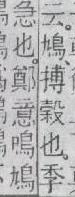 云。鳩、搏穀也。季
急也。鄭意鳴鳩